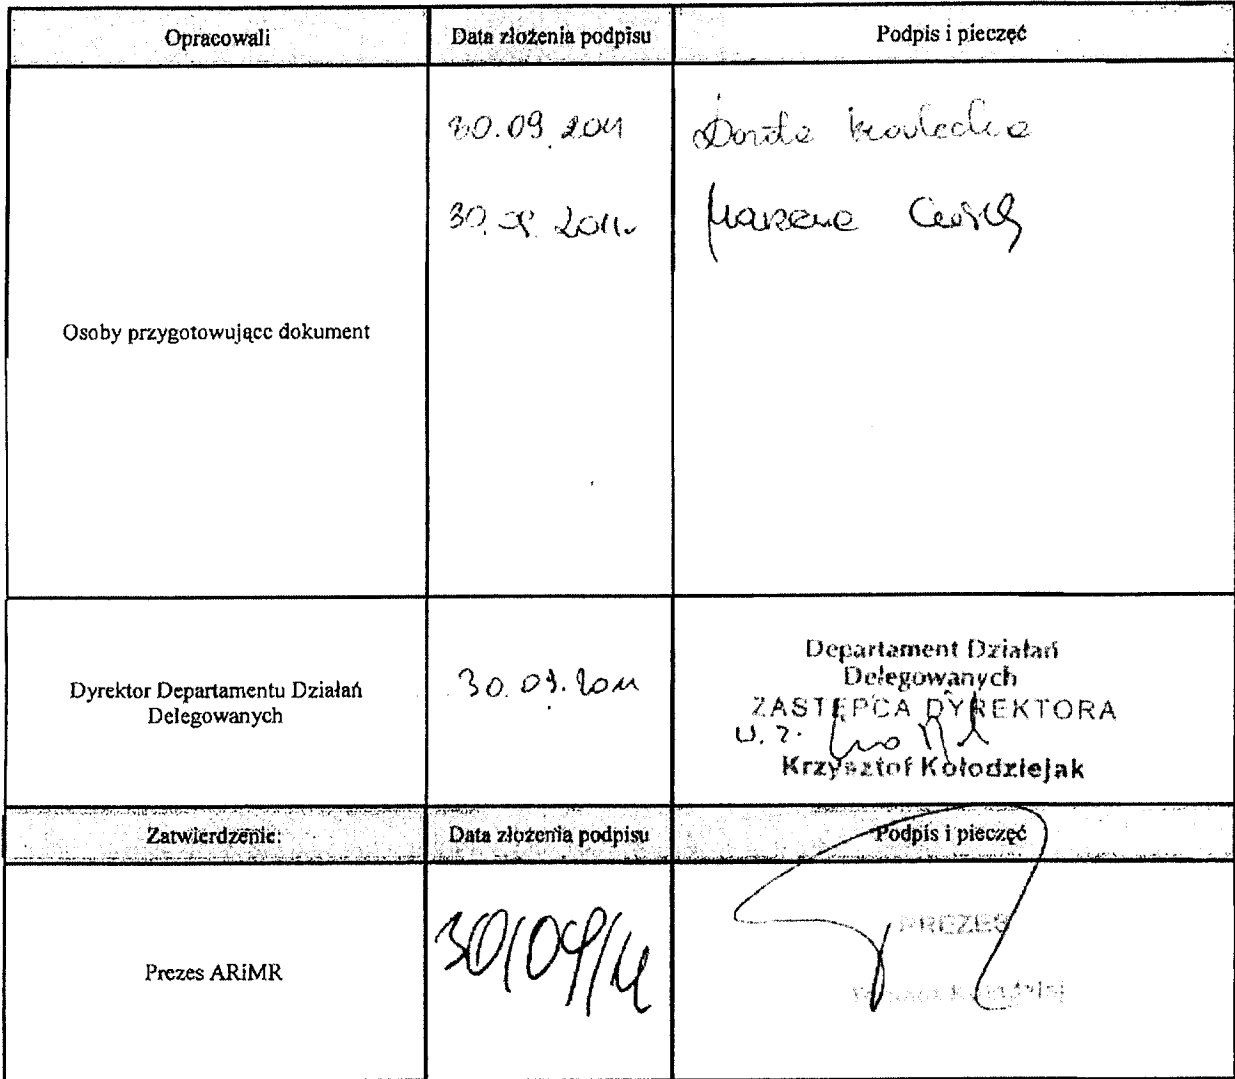 Opracowali
Data złożenia podpisu
Podpis i pieczęć
30.09.2011
Dorota
30.09.2011r.
Marzena
Osoby przygotowujące dokument
Dyrektor Departamentu Działań
Delegowanych
30.09.2011
Departament Działań
Delegowanych
ZASTĘPCA DYREKTORA
w. z.
Krzysztof Kołodziejak
Zatwierdzenie:
Data złożenia podpisu
Podpis i pieczęć
Prezes ARiMR
30/09/11
PREZES